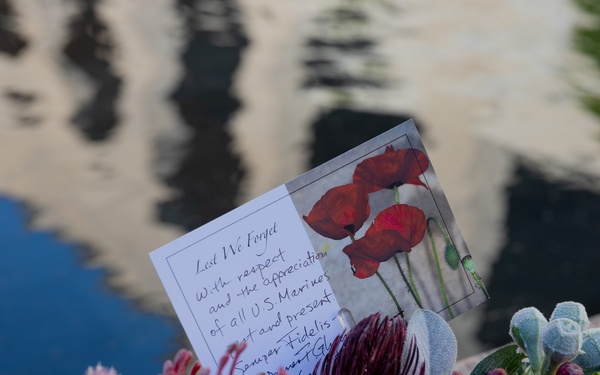 Lest We Forget
With respect
and the appreciation
of all US Marines
st and present
Semper Fidelis-